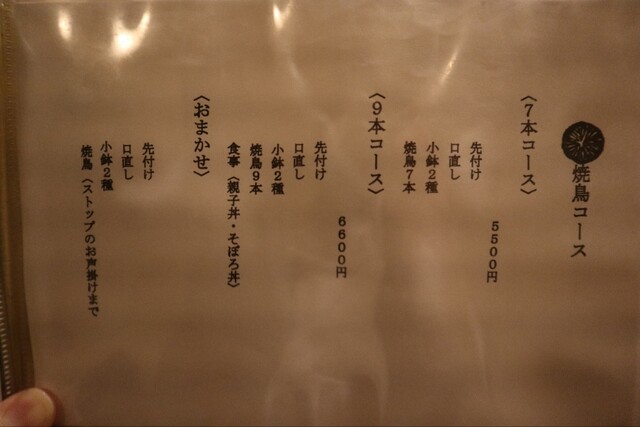 焼鳥コース
〈7本コース〉
5500円
先付け
口直し
小鉢2種
焼鳥7本
〈9本コース〉
6600円
先付け
口直し
小鉢2種
焼鳥9本
食事〈親子丼・そぼろ丼〉
〈おまかせ〉
先付け
口直し
小鉢2種
焼鳥〈ストップのお声掛けまで